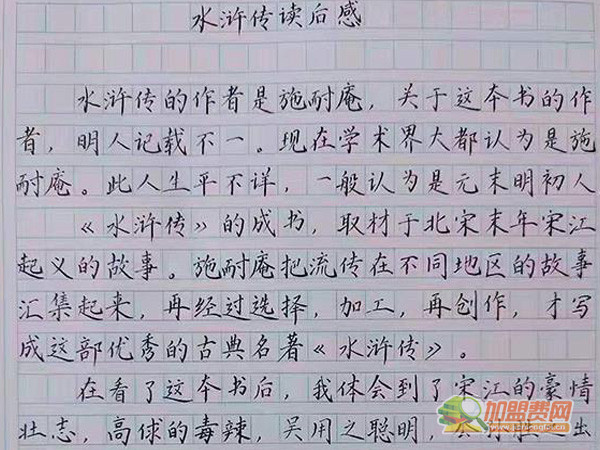 水浒传读后感
水浒传的作者是施耐庵，关于这本书的作
者，明人记载不一。现在学术界大都认为是施
耐庵。此人生平不详，一般认为是元末明初人
《水浒传》的成书，取材于北宋末年宋江
起义的故事。施耐庵把流传在不同地区的故事
汇集起来，再经过选择，加工，再创作，才写
成这部优秀的古典名著《水浒传》。
在看了这本书后，我体会到了宋江的豪情
壮志，高俅的毒辣，吴用之聪明，
出
加盟费网